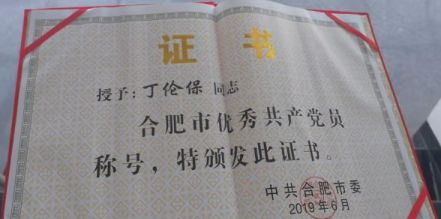 证书
授予：丁伦保 同志
合肥市优秀共产党员
称号，特颁发此证书。
中共合肥市委
2019年6月